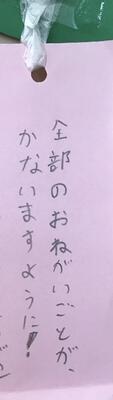 全部のおねがいごとが、
かないますように!